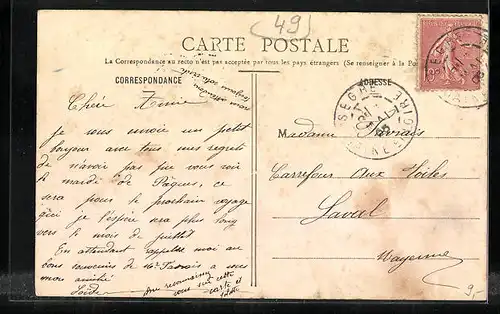 49
CARTE POSTALE
La Correspondance au recto n'est pas acceptée par tous les pays étrangers (Se renseigner à la Poste)
CORRESPONDANCE
ADRESSE
toujours
Chère Amie
je vous envoie un petit
bonjour avec tous mes regrets
de n'avoir pas pu vous voir
le mardi de Pâques, ce
sera pour le prochain voyage
qui je l'espère sera plus long
vers le mois de juillet
En attendant rappeler moi au
bons souvenirs de Mr
amitié
vous sur cette
carte
SEGRÉ
MAINE ET LOIRE
Madame
Carrefour aux Toiles
Laval
Mayenne
9,-